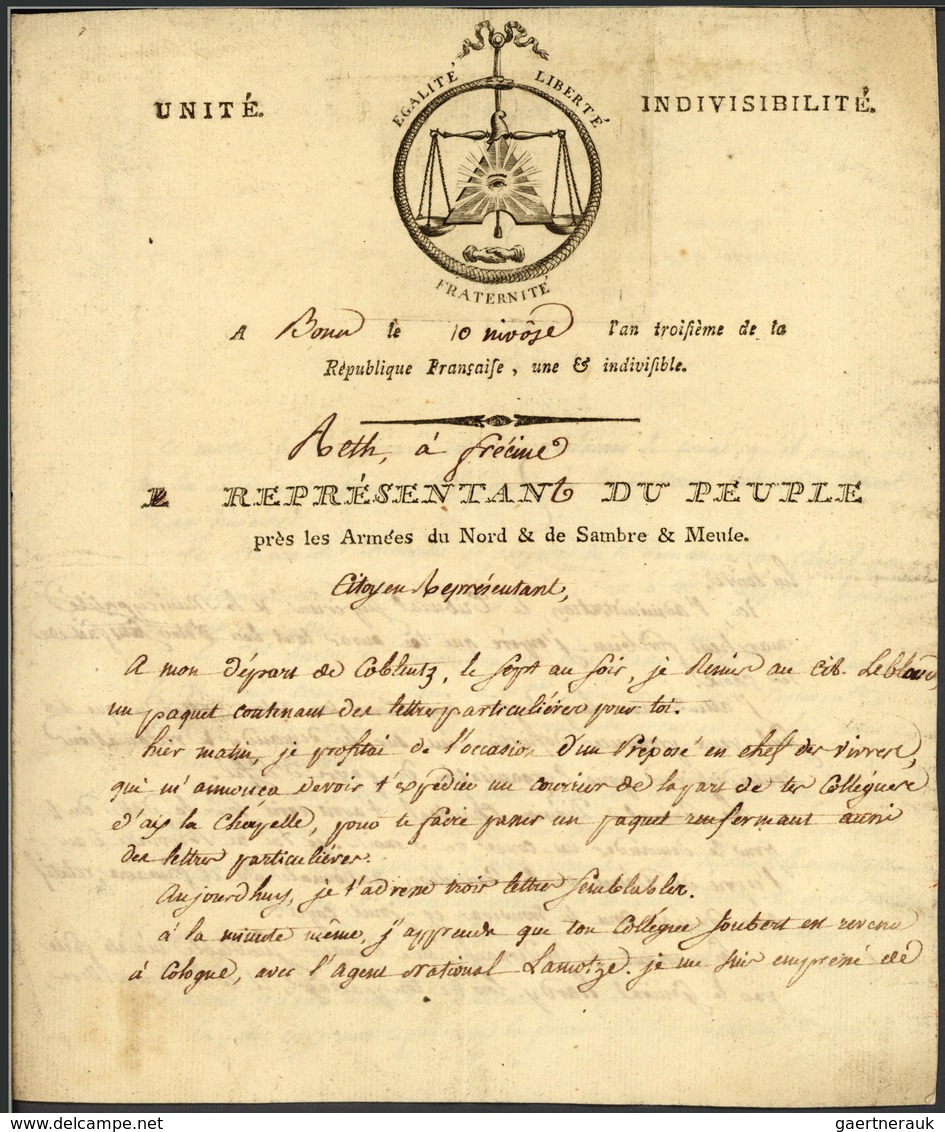 UNITÉ.
EGALITÉ LIBERTÉ
INDIVISIBILITÉ.
FRATERNITÉ
A Bonn le 10 nivôse l'an troisième de la
République Française, une & indivisible.
à frécine
REPRÉSENTANt DU PEUPLE
près les Armées du Nord & de Sambre & Meuse.
Citoyen Représentant,
A mon départ de Coblentz, le Sept au Soir, je Remis au cit. Leblanc
un paquet contenant des lettres particuliéres pour toi.
hier matin, je profitai de l'occasion d'un Préposé en chef des vivres,
qui m'annonça devoir t'expédier un courrier de la part de tes Collégues
d'aix la Chapelle, pour te faire passer un paquet renfermant aussi
des lettres particuliéres.
Aujourdhuy, je t'adresse trois lettres Semblables.
à la minute même, j'apprends que ton Collégue Joubert est revenu
à Cologne, avec l'agent National Lamotze. je me suis empressé de
gaertnerauk